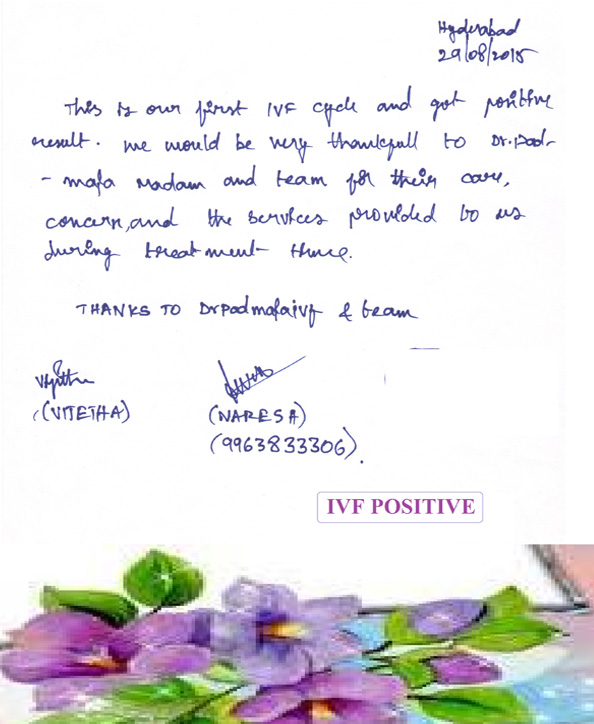 Hyderabad
29/08/2015
This is our first IVF cycle and got positive
result. We would be very thankfull to Dr.Pad-
- maja Madam and team for their care,
concern, and the services provided to us
during treatment time.
THANKS TO Dr Padmajaivf & team
(VIJETHA)
(NARESH)
(9963833306).
IVF POSITIVE